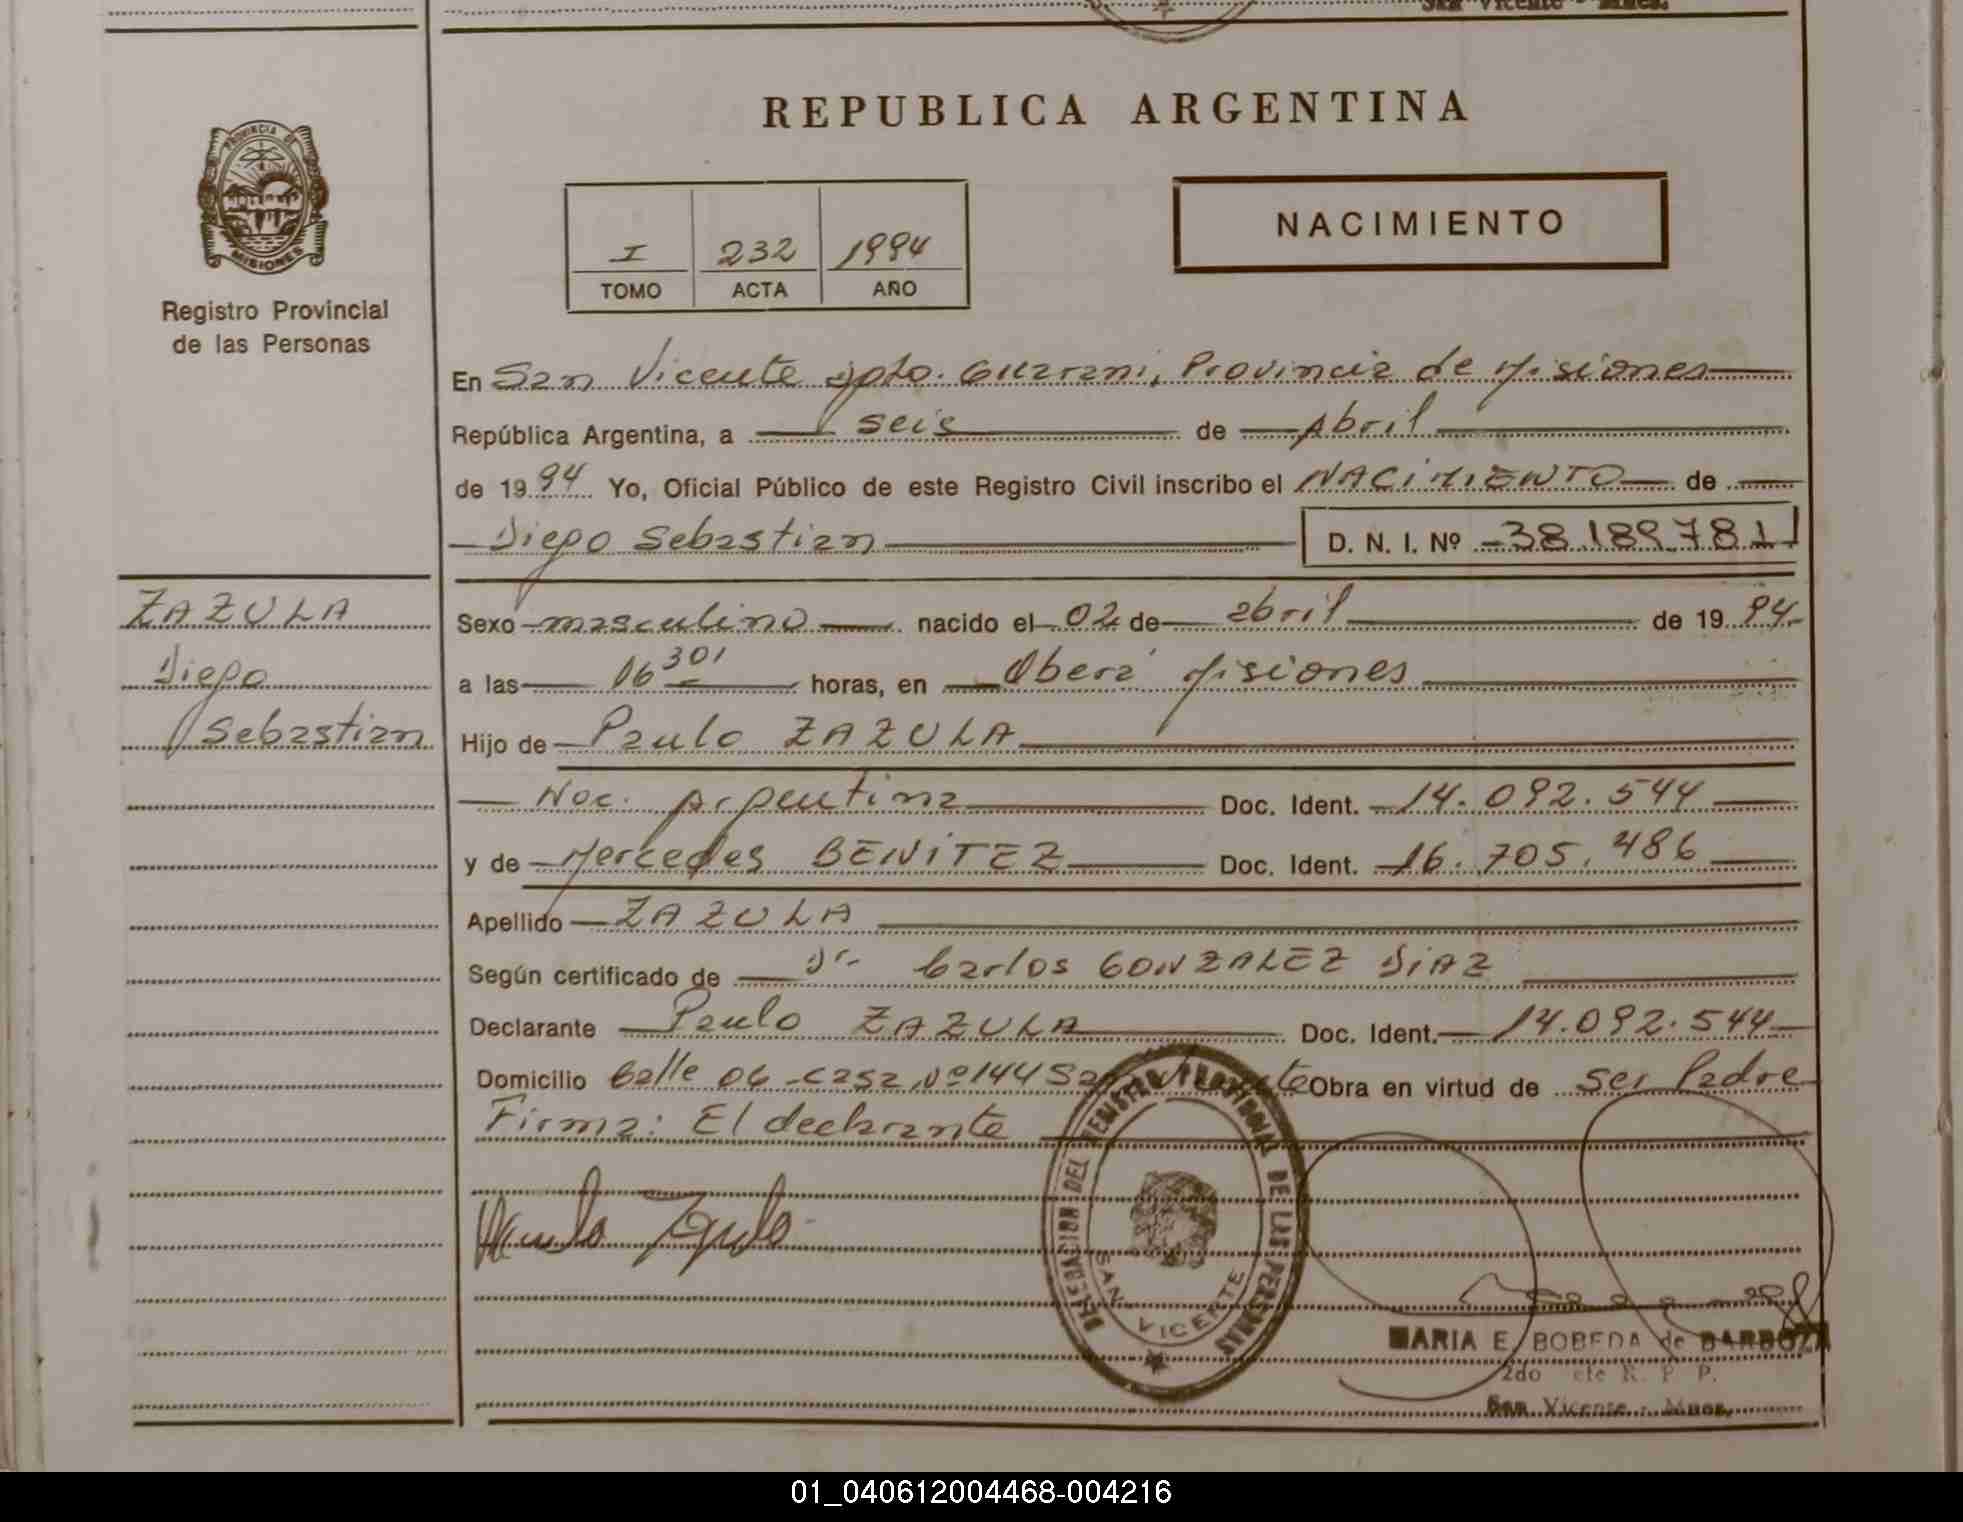 San Vicente - Mnes.
REPUBLICA ARGENTINA
PROVINCIA DE
MISIONES
Registro Provincial
de las Personas
NACIMIENTO
I 232 1994
TOMO ACTA AÑO
En San Vicente Dpto. Guarani, Provincia de Misiones
República Argentina, a seis de Abril
de 1994 Yo, Oficial Público de este Registro Civil inscribo el NACIMIENTO de
Diego Sebastian D. N. I. Nº 38.189.781
ZAZULA
Diego
Sebastian
Sexo masculino nacido el 02 de abril de 1994
a las 06 30' horas, en Oberá Misiones
Hijo de Paulo ZAZULA
Nac. Argentina Doc. Ident. 14.092.544
y de Mercedes BENITEZ Doc. Ident. 16.705.486
Apellido ZAZULA
Según certificado de Dr. Carlos GONZALEZ DIAZ
Declarante Paulo ZAZULA Doc. Ident. 14.092.544
Domicilio Calle 06 casa Nº 144 San Vicente Obra en virtud de ser Padre
Firma: El declarante
Paulo Zazula
DELEGACION DEL REGISTRO PROVINCIAL DE LAS PERSONAS
SAN VICENTE
MARIA E. BOBEDA de BARBOZA
2do R. P. P.
San Vicente - Mnes.
01_040612004468-004216